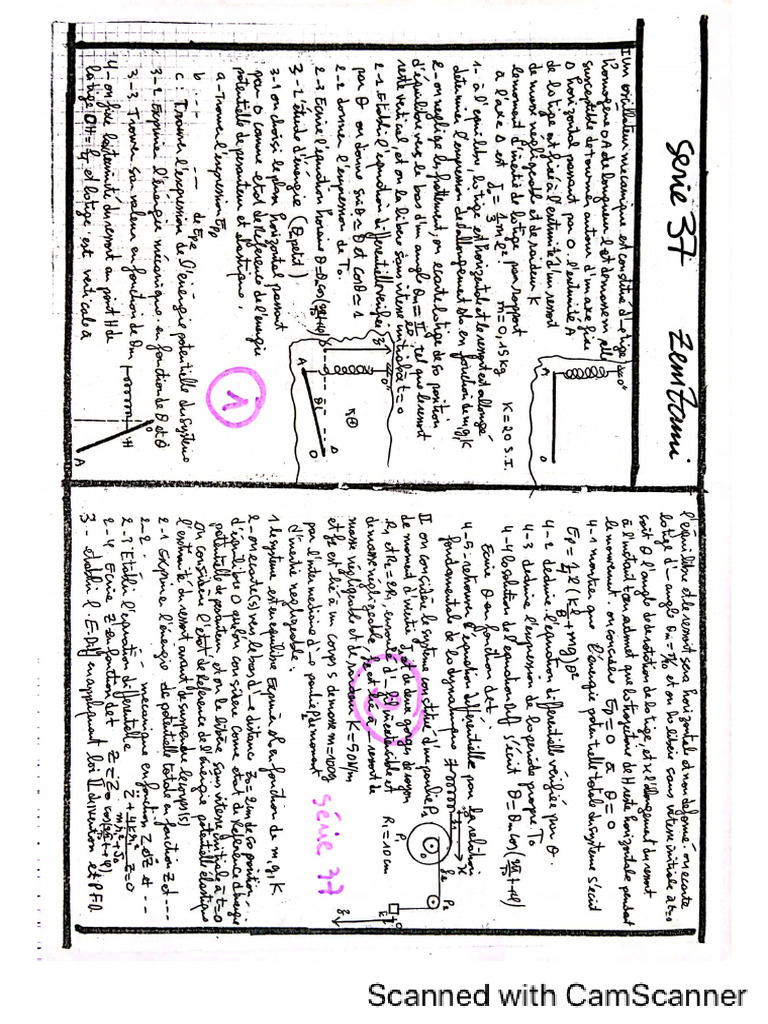 Serie 37 Zemzami
I Un oscillateur mecanique est constitué d'une tige
homogène OA de longueur l et de masse m, elle
susceptible de tourner autour d'un axe fixe
Δ horizontal passant par O. l'extrémité A
de la tige est fixée à l'extrémité d'un ressort
de masse négligeable et de raideur K
le moment d'inertie de la tige par rapport
à l'axe Δ est J₀ = 1/3 ml² m = 0,15 kg K = 20 S.I.
1- à l'équilibre, la tige est horizontale et le ressort est allongé
déterminer l'expression de l'allongement Δl₀ en fonction de m, g, K
2- on neglige le frottement, on ecarte la tige de sa position
d'équilibre vers le bas d'un angle θm = π/ tel que le ressort
reste vertical, et on la libère sans vitesse initiale à t = 0
2-1 Etablir l'équation differentielle vérifiée
par θ on donne sin θ ≈ θ et cos θ ≈ 1
2-2 donner l'expression de T₀.
2-3 Ecrire l'équation horaire θ = θm cos(2π/T₀ t + φ)
3- L'étude d'énergie (θ petit)
3-1 on choisi le plan horizontal passant
par O comme etat de Reference de l'energie
potentielle de pesanteur et elastique,
a - Trouver l'expression Epp
b - - - - de Epe
c : Trouver l'expression de l'énergie potentielle du système
3-2 Exprimer l'énergie mécanique en fonction de θ et θ̇
3-3. Trouver sa valeur en fonction de θm
4- on fixe l'extrémité du ressort au point H de
la tige OH = et la tige est verticale à
1
l'équilibre et le ressort sera horizontal et non déformé. on ecarte
la tige d'un angle θm = et on la libère sans vitesse initiale à t=0
soit θ l'angle de rotation de la tige, et x l'élongation du ressort
à l'instant t on admet que la trajectoire de H reste horizontale pendant
le mouvement. on considère Epp = 0 à θ = 0
4-1 montrer que l'énergie potentielle totale du système s'écrit
4-2 déduire l'équation differentielle vérifiée par θ.
4-3 déduire l'expression de la période propre T₀
4-4 la solution de l'equation diff s'écrit θ = θm cos(2π/T₀ t + φ)
Ecrire θ en fonction de t.
4-5 - retrouver l'équation differentielle par la relation
fondamental de la dynamique
II on considère le système constitué d'une poulie P₁
de moment d'inertie J₀ et de deux gorges de rayon
R₁ et R₂ = 2R₁, enroulé d'un fil inextensible et
de masse négligeable, le est lié à un ressort de
masse négligeable et de raideur K = 50 N/m
et est lié à un corps S de masse m = 100g
par l'intermediaire d'une poulie P₂ de moment
d'inertie negligeable. R₁ = 10 cm
1 le système est en equilibre Exprimer Δl en fonction de m, g, K
2 - on ecarte (s) vers le bas d'une distance z₀ = 2cm de sa position
d'équilibre O qu'on considère comme etat de Reference d'énergie
potentielle de pesanteur et on le libère sans vitesse initiale à t=0
on considère l'état de Reference de l'énergie potentielle élastique
l'extrémité du ressort avant de suspendre le corps (s)
2-1 Exprimer l'énergie de potentielle total en fonction Z et - - -
2-2. - - - mecanique en fonction Z, Ż et - - -
2-3 Etablir l'équation differentielle
2-4 Ecrire Z en fonction de t Z = Z₀ cos(2π/T₀ t + φ)
3 - etablir l'E.Diff en appliquant loi II de newton et P.F.D
serie 37
Scanned with CamScanner